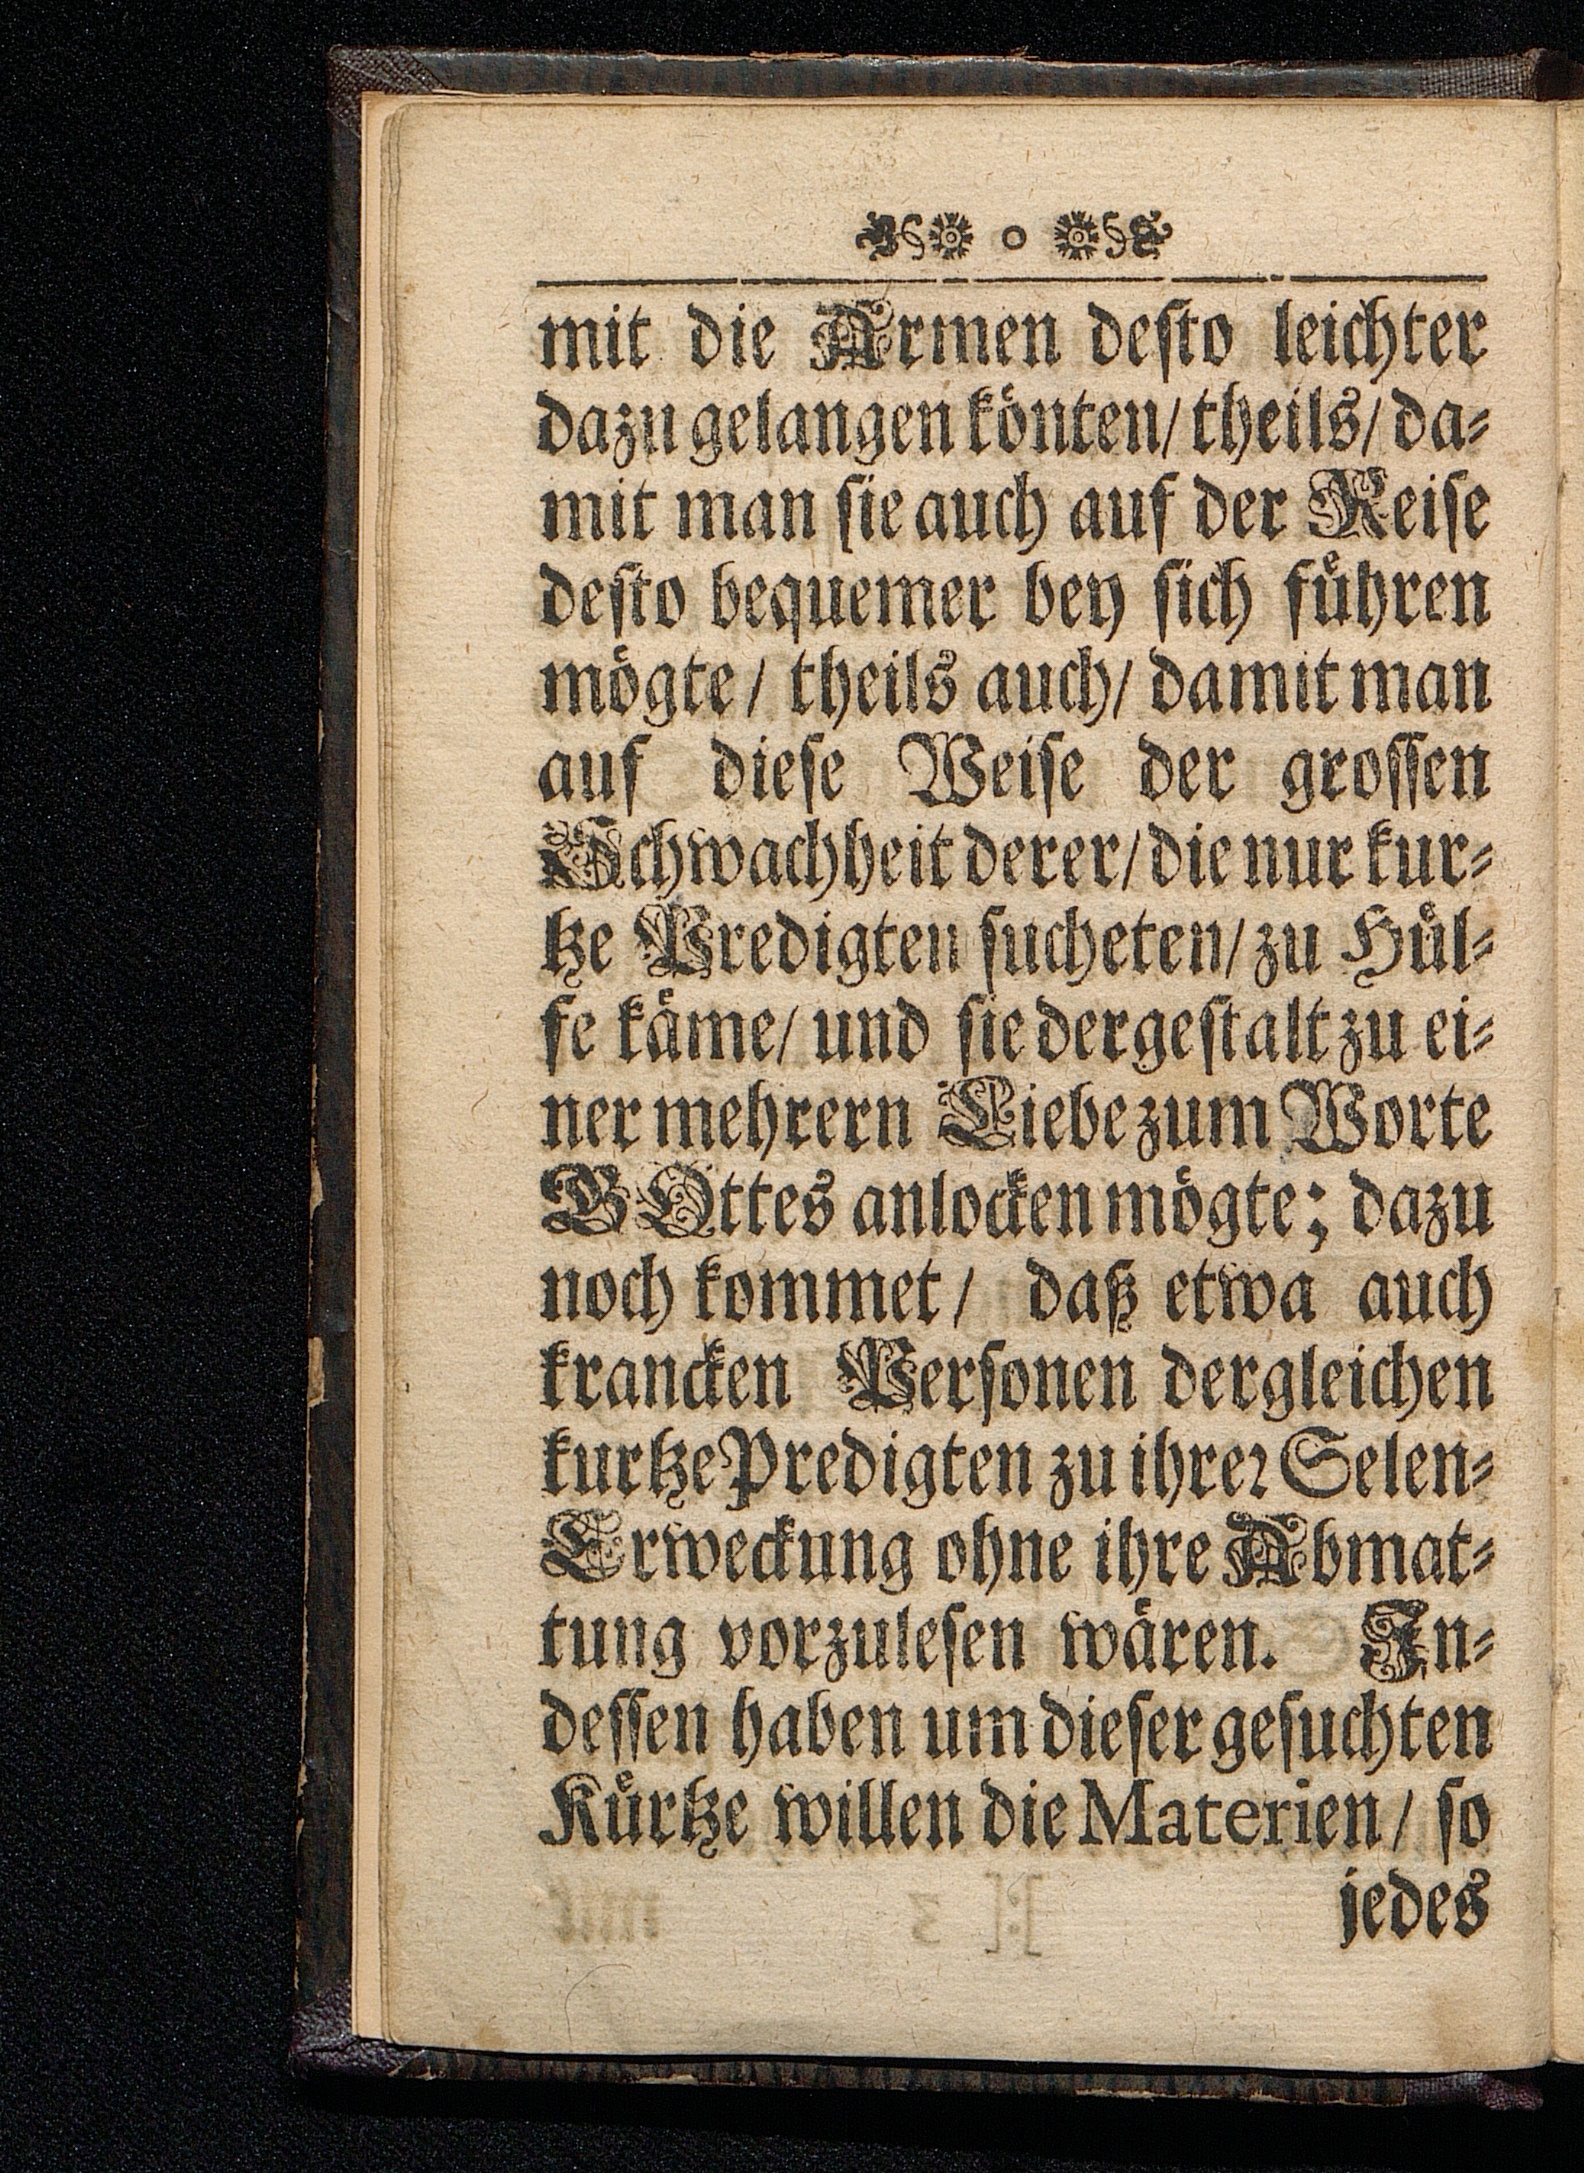 o
mit die Armen deſto leichter
dazu gelangen koͤnten/ theils/ da-
mit man ſie auch auf der Reiſe
deſto bequemer bey ſich fuͤhren
moͤgte/ theils auch/ damit man
auf dieſe Weiſe der groſſen
Schwachheit derer/ die nur kur-
tze Predigten ſucheten/ zu Huͤl-
fe kaͤme/ und ſie dergeſtalt zu ei-
ner mehrern Liebe zum Worte
GOttes anlocken moͤgte; dazu
noch kommet/ daß etwa auch
krancken Perſonen dergleichen
kurtze Predigten zu ihrer Selen-
Erweckung ohne ihre Abmat-
tung vorzuleſen waͤren. In-
deſſen haben um dieſer geſuchten
Kuͤrtze willen die Materien/ ſo
jedes